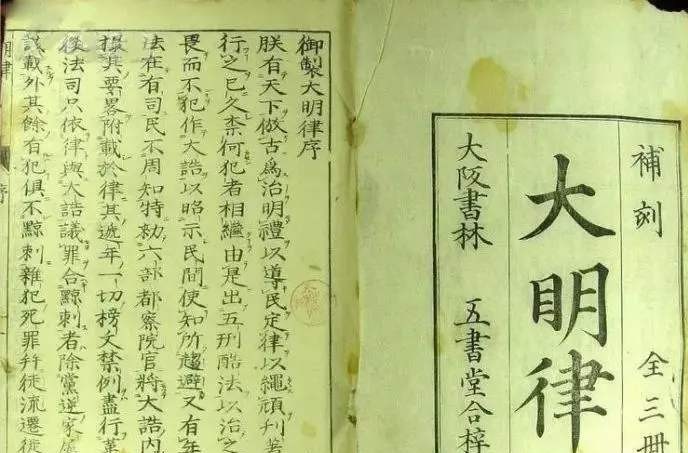 補刻 全三冊
大明律
大阪書林 五書堂合梓
御製大明律序
朕有天下倣古爲治明禮以導民定律以繩頑刊著
行之已久柰何犯者相繼由是出五刑酷法以治之
畏而不犯作大誥以昭示民間使知所趨避又有年
法在有司民不周知特勑六部都察院官將大誥內
撮其要畧附載於律其逓年一切榜文禁例盡行革
後法司只依律與大誥議罪合黥刺者除黨逆家屬
該載外其餘有犯俱不黥刺雜犯死罪幷徒流遷徙
明律 序